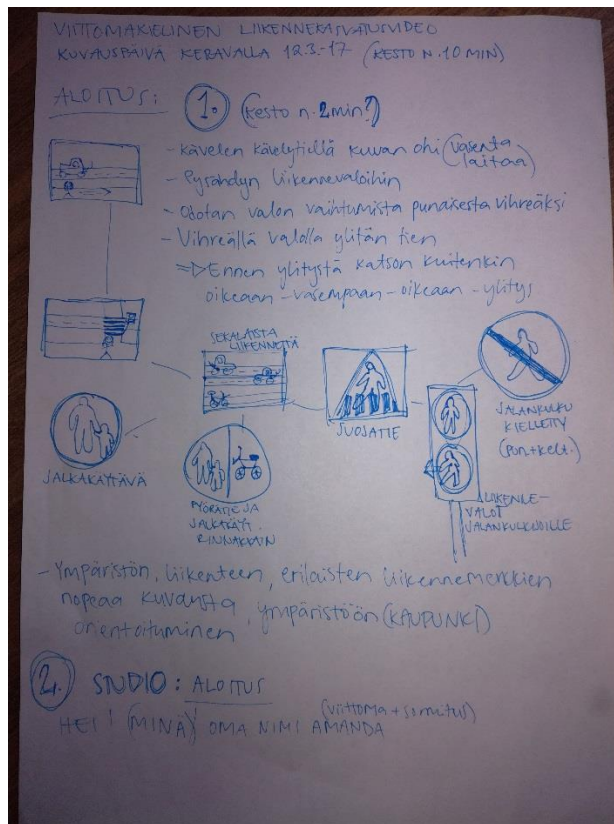 VIITTOMAKIELINEN LIIKENNEKASVATUSVIDEO
KUVAUSPÄIVÄ KERAVALLA 12.3.-17 (KESTO N. 10 MIN)
ALOITUS:
1. (kesto n. 2min?)
- kävelen kävelytiellä kuvan ohi (vasenta laitaa)
- Pysähdyn liikennevaloihin
- Odotan valon vaihtumista punaisesta vihreäksi
- Vihreällä valolla ylitän tien
=> Ennen ylitystä katson kuitenkin
oikeaan - vasempaan - oikeaan - ylitys
SEKALAISTA
LIIKENNETTÄ
JALKAKÄYTÄVÄ
PYÖRÄTIE JA
JALKAKÄYT.
RINNAKKAIN
SUOJATIE
JALANKULKU
KIELLETTY
(pun+kelt.)
LIIKENNE-
VALOT
JALANKULKIJOILLE
- Ympäristön, liikenteen, erilaisten liikennemerkkien
nopeaa kuvausta, ympäristöön (KAUPUNKI)
orientoituminen
2. STUDIO: ALOITUS
(viittoma + sormitus)
HEI! (MINÄ) OMA NIMI AMANDA